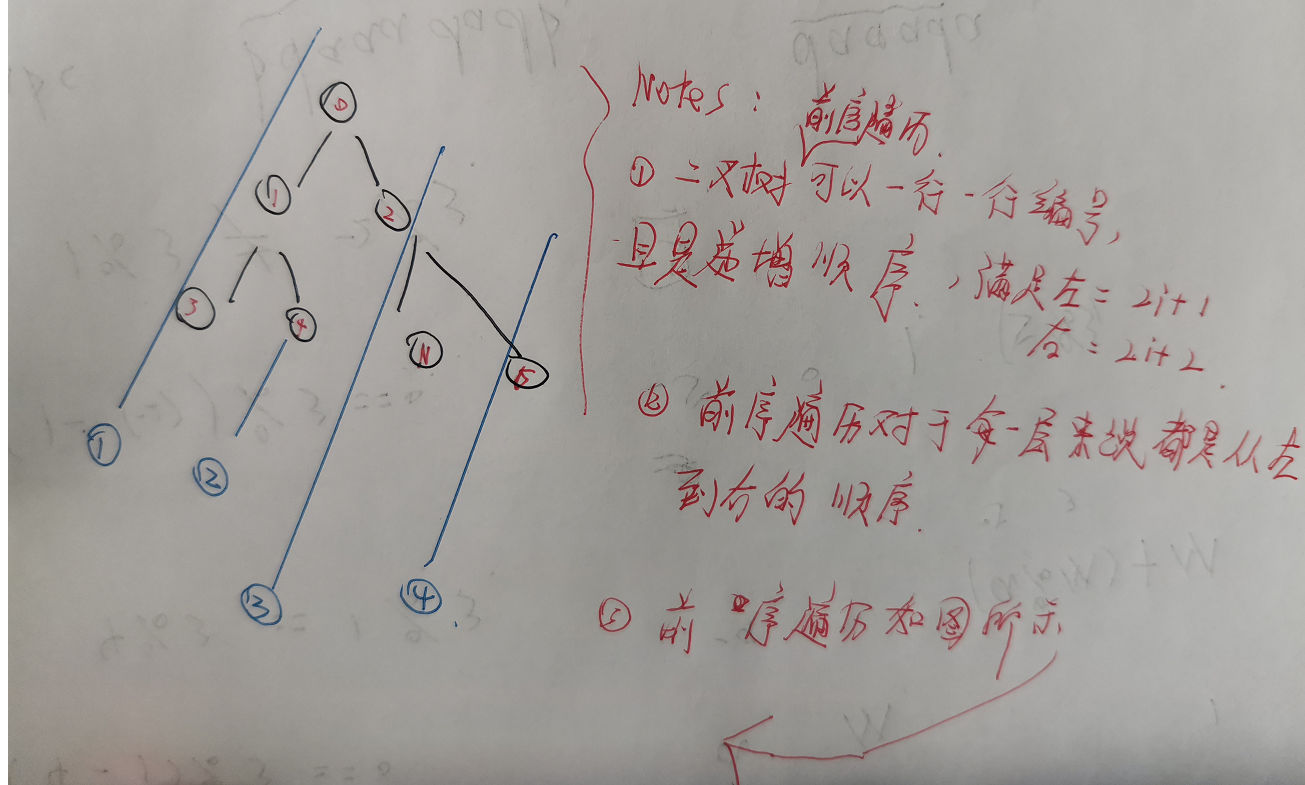 0
1
2
3
4
N
5
①
②
③
④
Notes:
前序遍历.
① 二叉树可以一行一行编号,
且是递增顺序,满足左=2i+1
右=2i+2.
② 前序遍历对于每一层来说都是从左
到右的顺序.
③ 前序遍历如图所示